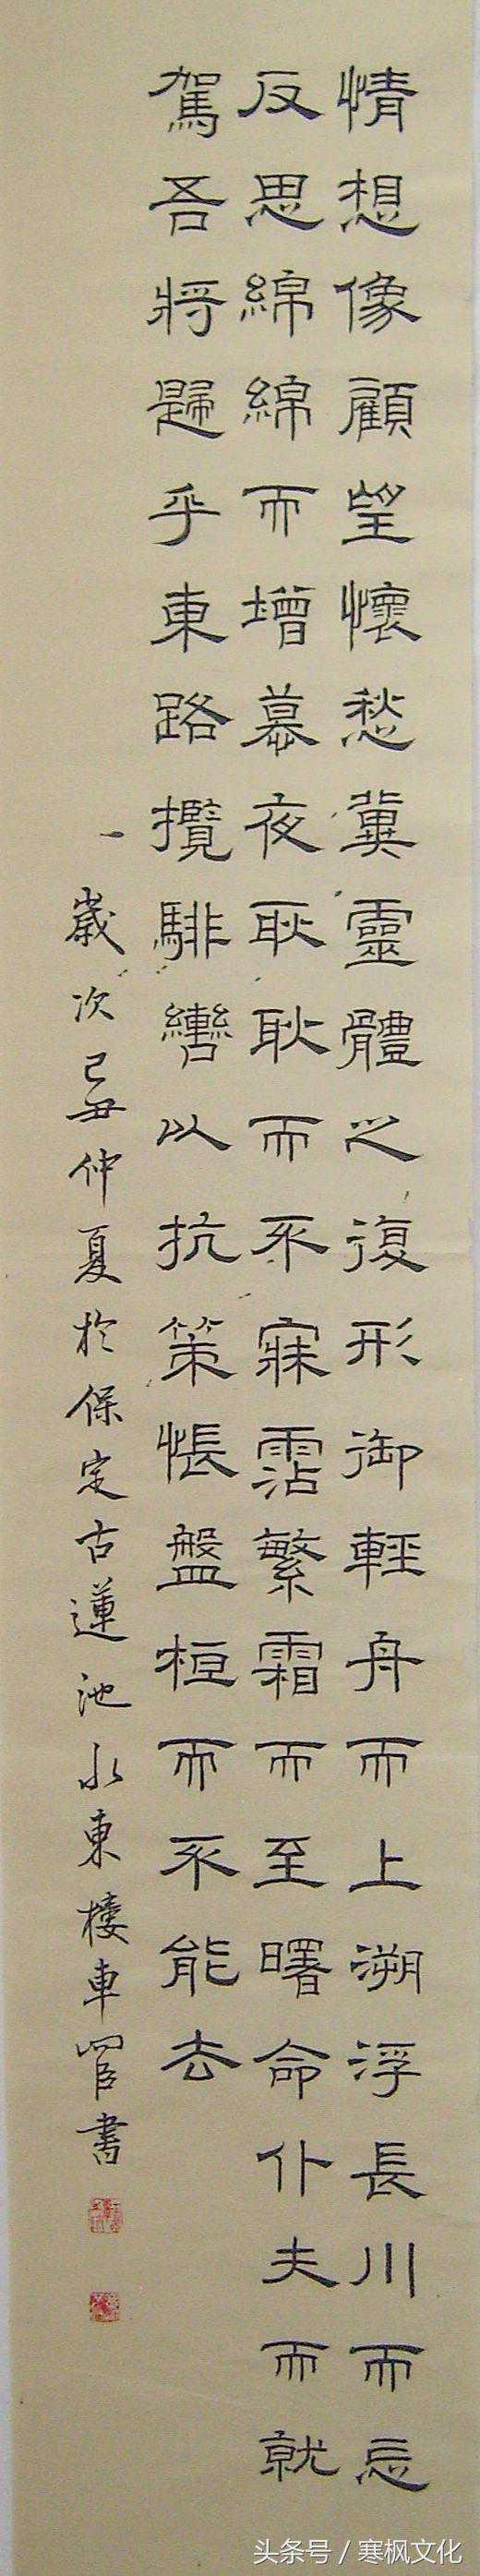 情想像顧望懷愁冀靈體之復形御輕舟而上溯浮長川而忘
反思綿綿而增慕夜耿耿而不寐霑繁霜而至曙命仆夫而就
駕吾將歸乎東路攬騑轡以抗策悵盤桓而不能去
歲次己丑仲夏於保定古蓮池水東樓車書
头条号 / 寒枫文化